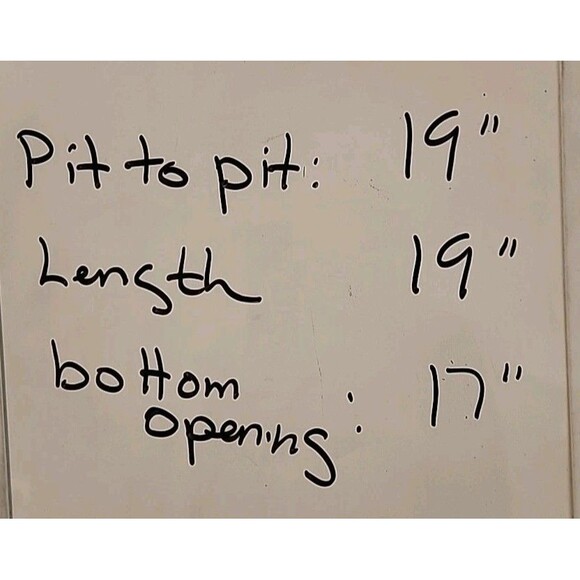 Pit to pit: 19"
Length 19"
bottom
opening: 17"